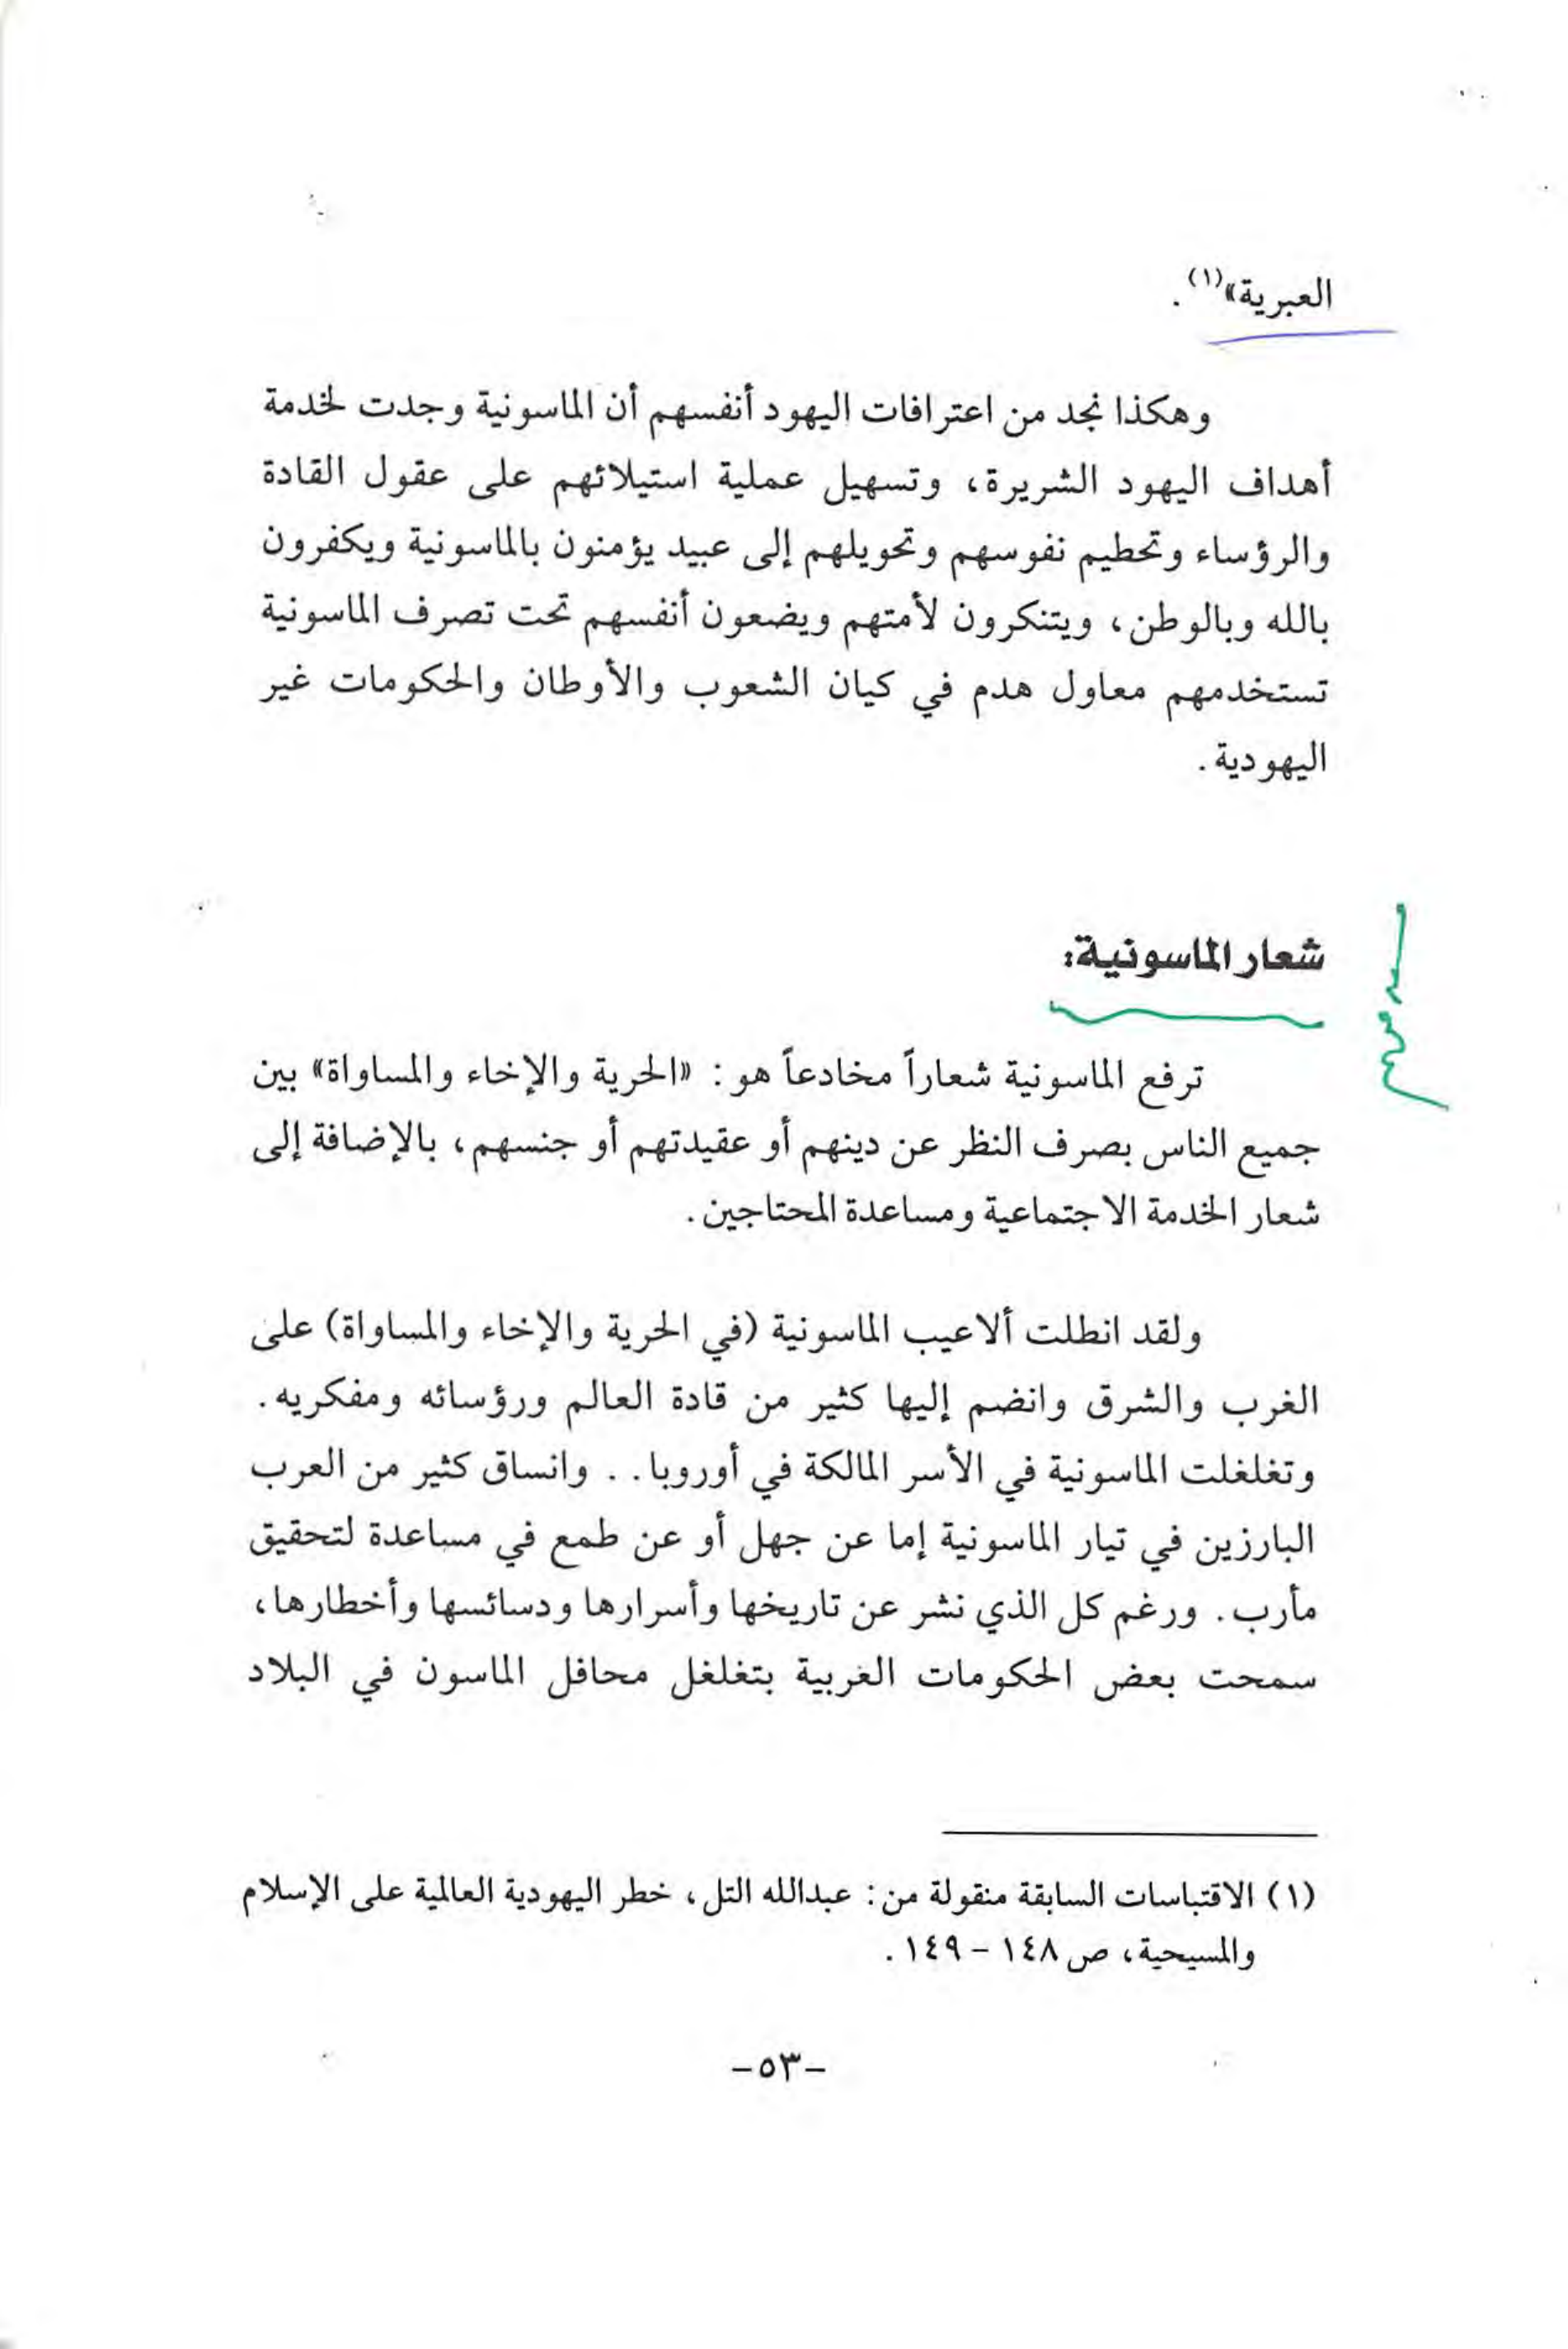 العبرية»(١).
وهكذا نجد من اعترافات اليهود أنفسهم أن الماسونية وجدت لخدمة
أهداف اليهود الشريرة، وتسهيل عملية استيلائهم على عقول القادة
والرؤساء وتحطيم نفوسهم وتحويلهم إلى عبيد يؤمنون بالماسونية ويكفرون
بالله وبالوطن، ويتنكرون لأمتهم ويضعون أنفسهم تحت تصرف الماسونية
تستخدمهم معاول هدم في كيان الشعوب والأوطان والحكومات غير
اليهودية.
شعار الماسونية:
ترفع الماسونية شعاراً مخادعاً هو: «الحرية والإخاء والمساواة» بين
جميع الناس بصرف النظر عن دينهم أو عقيدتهم أو جنسهم، بالإضافة إلى
شعار الخدمة الاجتماعية ومساعدة المحتاجين.
ولقد انطلت ألاعيب الماسونية (في الحرية والإخاء والمساواة) على
الغرب والشرق وانضم إليها كثير من قادة العالم ورؤسائه ومفكريه.
وتغلغلت الماسونية في الأسر المالكة في أوروبا.. وانساق كثير من العرب
البارزين في تيار الماسونية إما عن جهل أو عن طمع في مساعدة لتحقيق
مأرب. ورغم كل الذي نشر عن تاريخها وأسرارها ودسائسها وأخطارها،
سمحت بعض الحكومات الغربية بتغلغل محافل الماسون في البلاد
(١) الاقتباسات السابقة منقولة من: عبدالله التل، خطر اليهودية العالمية على الإسلام
والمسيحية، ص ١٤٨ - ١٤٩.
-٥٣-